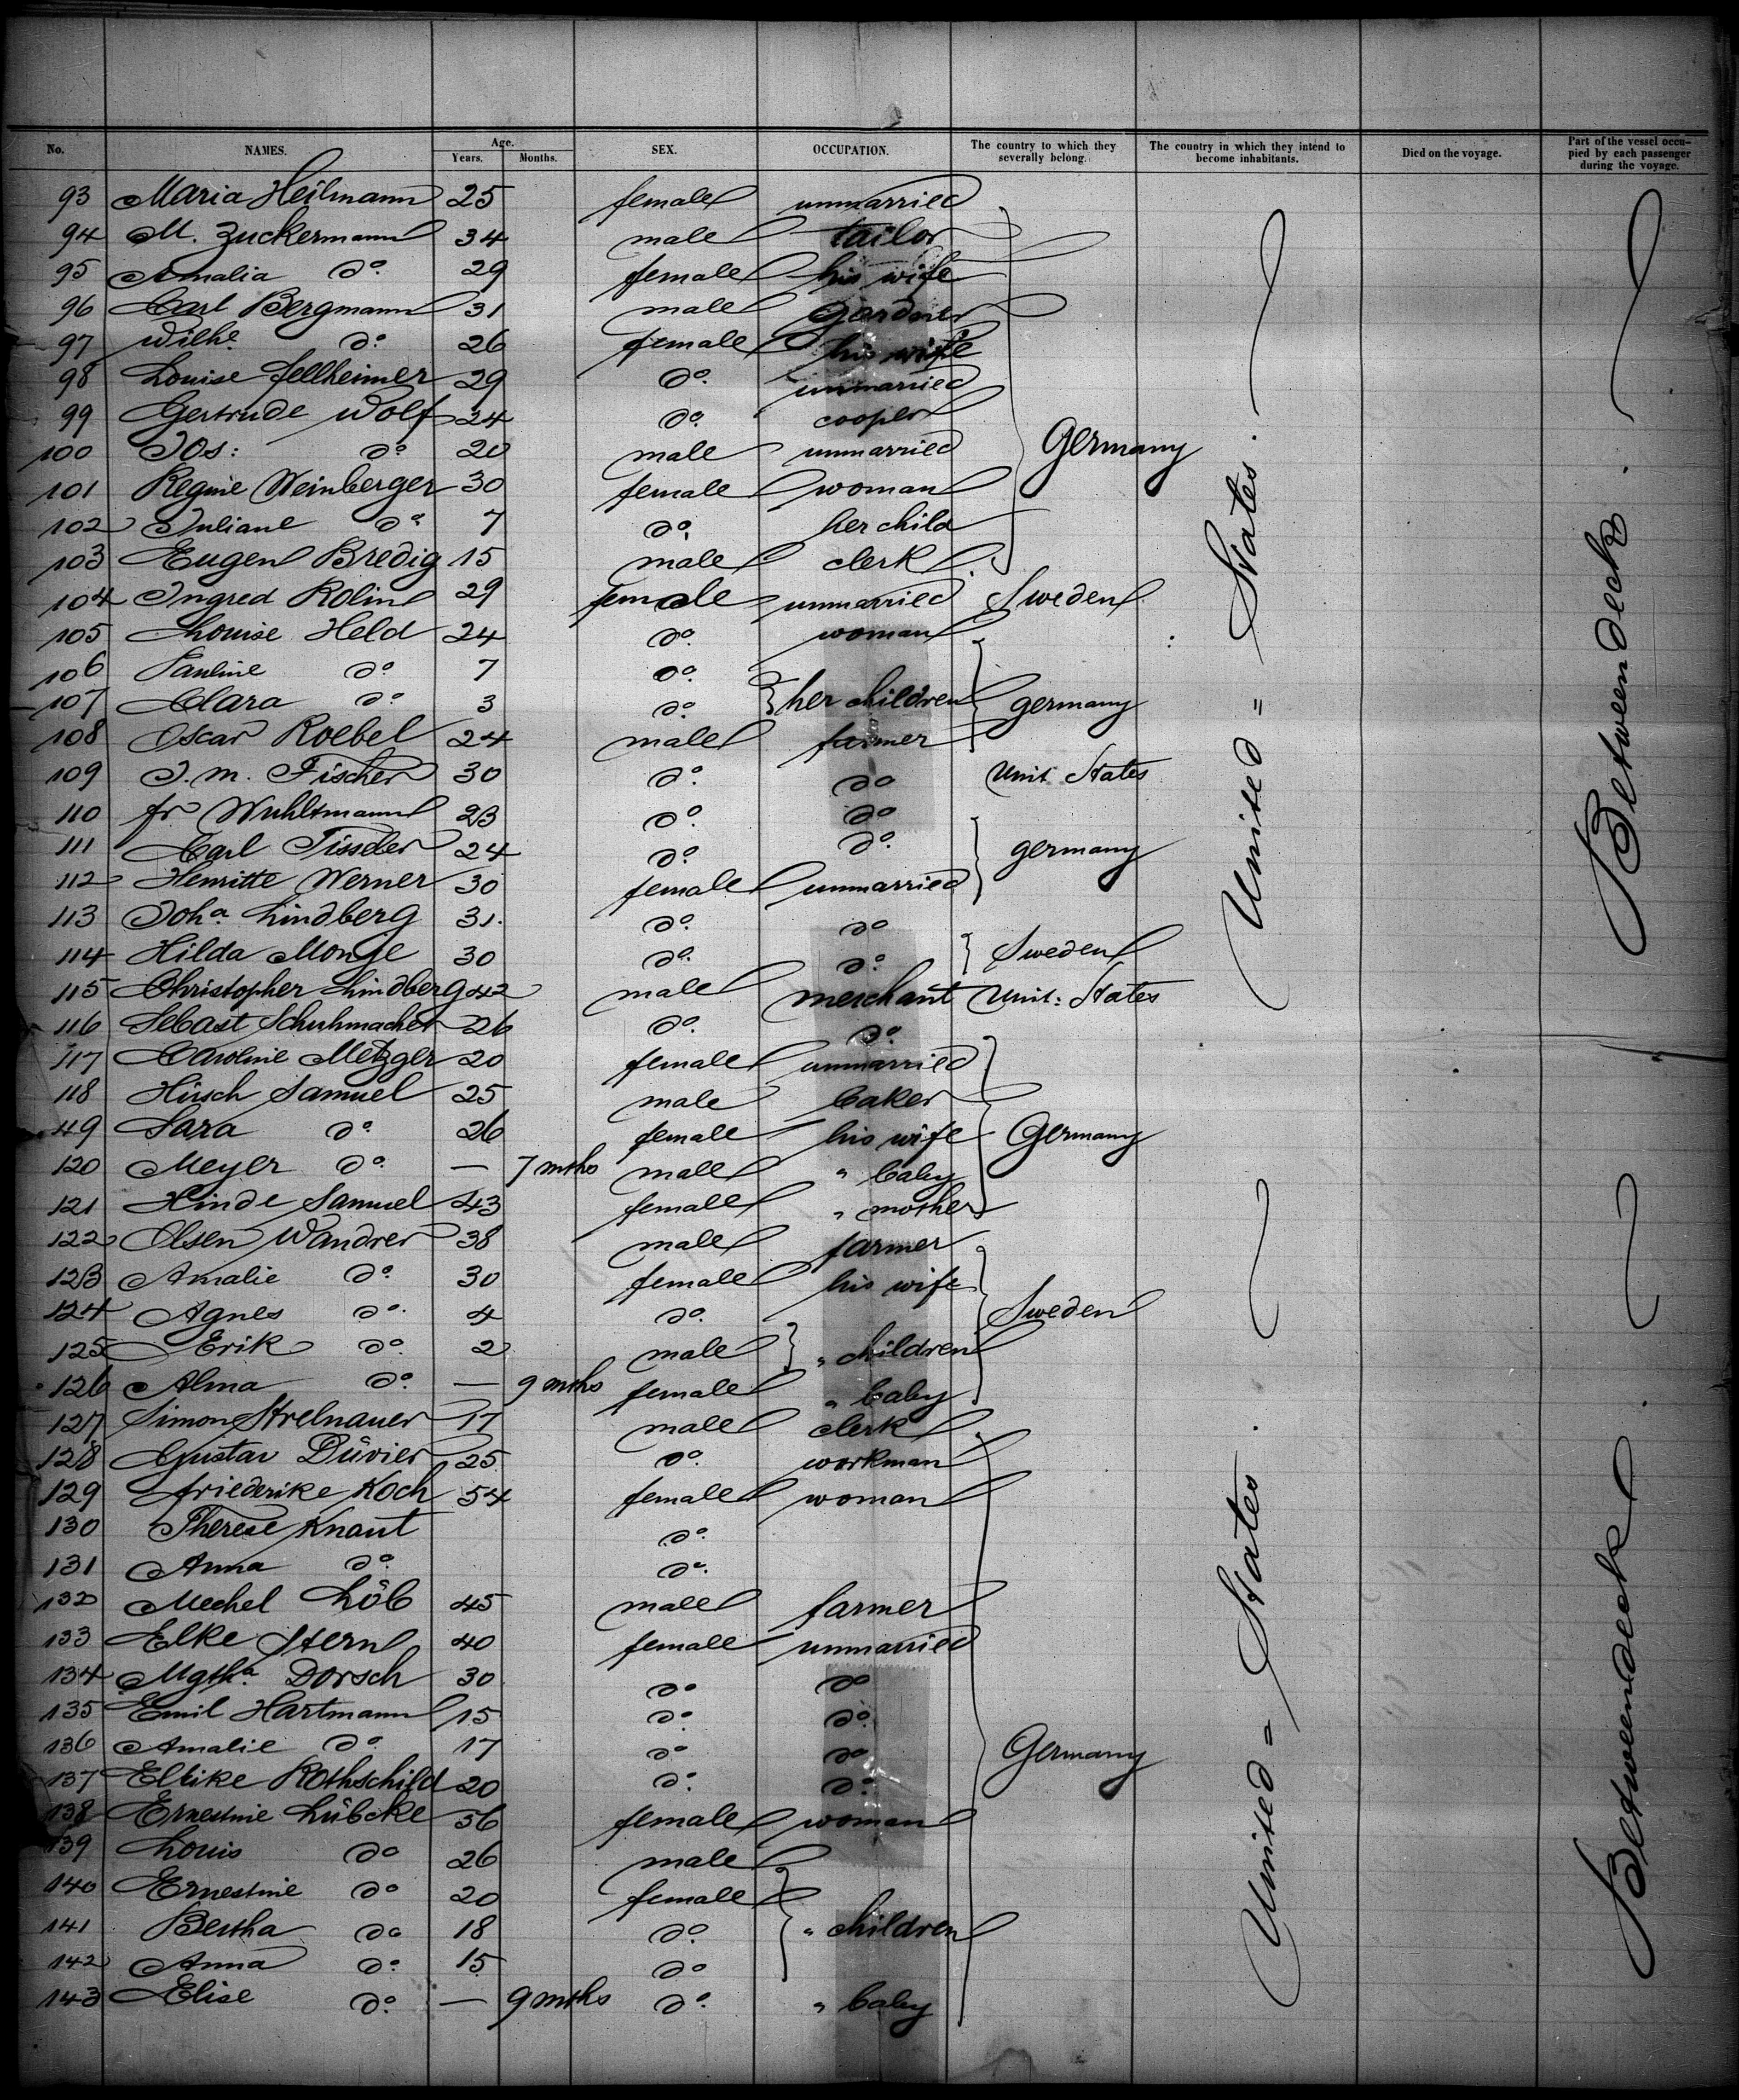 No. NAMES. Age. Years. Months. SEX. OCCUPATION. The country to which they severally belong. The country in which they intend to become inhabitants. Died on the voyage. Part of the vessel occupied by each passenger during the voyage.
93 Maria Heilmann 25 female unmarried
94 M. Zuckermann 34 male tailor
95 Amalia do. 29 female his wife
96 Carl Bergmann 31 male gardner
97 Wilhe. do. 26 female his wife
98 Louise Fellheimer 29 do. unmarried
99 Gertrude Wolf 24 do. cooper
100 Jos: do. 20 male unmarried Germany
101 Regine Weinberger 30 female woman
102 Juliane do. 7 do. her child
103 Eugen Bredig 15 male clerk
104 Ingred Rolin 29 female unmarried Sweden
105 Louise Held 24 do. woman
106 Pauline do. 7 do.
107 Clara do. 3 do. her children Germany
108 Oscar Roebel 24 male farmer
109 J. M. Fischer 30 do. do Unit. States
110 Fr Wuhltmann 23 do. do
111 Carl Tissler 24 do. do. Germany
112 Henritte Werner 30 female unmarried
113 Joha. Lindberg 31. do. do
114 Hilda Monge 30 do. do. Sweden
115 Christopher Lindberg 42 male merchant Unit: States
116 Sebast Schuhmacher 26 do. do.
117 Caroline Metzger 20 female unmarried
118 Hirsch Samuel 25 male baker
49 Sara do. 26 female his wife Germany
120 Meyer do. — 7 mths male " baby
121 Hinde Samuel 43 female " mother
122 Olsen Wandrer 38 male farmer
123 Amalie do. 30 female his wife
124 Agnes do. 4 do. Sweden
125 Erik do. 2 male " children
126 Alma do. — 9 mths female " baby
127 Simon Strelnauer 17 male clerk
128 Gustav Düvier 25 do. workman
129 Friederike Koch 54 female woman
130 Therese Knaut do.
131 Anna do. do.
132 Mechel Löb 45 male farmer
133 Elke Stern 40 female unmarried
134 Mgtha. Dorsch 30 do. do
135 Emil Hartmann 15 do. do.
136 Amalie do. 17 do. do Germany
137 Elkike Rothschild 20 do. do.
138 Ernestine Lübcke 56 female woman
139 Louis do 26 male
140 Ernestine do 20 female
141 Bertha do 18 do. " children
142 Anna do. 15 do
143 Elise do. — 9 mths do. " baby
United = States.
United = States.
Betweendeck.
Betweendeck.